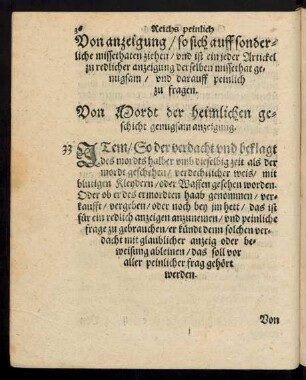 30 Reichs peinlich
Von anzeigung / so sich auff sonder-
liche missethaten ziehen / vnd ist ein jeder Artickel
zu redlicher anzeigung derselben missethat ge-
nugsam / vnd darauff peinlich
zu fragen.
Von Mordt der heimlichen ge-
schicht genugsam anzeigung.
33 ITem / So der verdacht vnd beklagt
des mordts halber vmb dieselbig zeit als der
mordt geschehen / verdechtlicher weis / mit
blutigen Kleydern / oder Waffen gesehen worden.
Oder ob er des ermordten haab genommen / ver-
kaufft / vergeben / oder noch bey jm hett / das ist
für ein redlich anzeigen anzunemen / vnd peinliche
frage zu gebrauchen / er kündt denn solchen ver-
dacht mit glaublicher anzeig oder be-
weisung ableinen / das soll vor
aller peinlicher frag gehört
werden.
Von